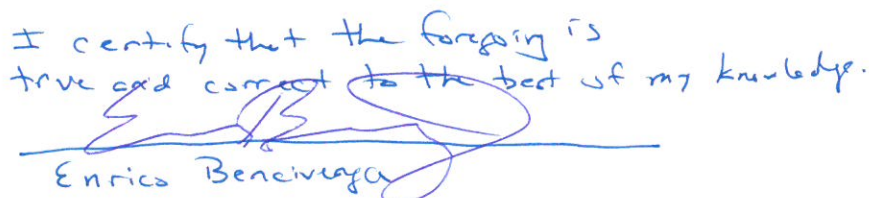 I certify that the foregoing is
true and correct to the best of my knowledge.
Enrico Bencivenga